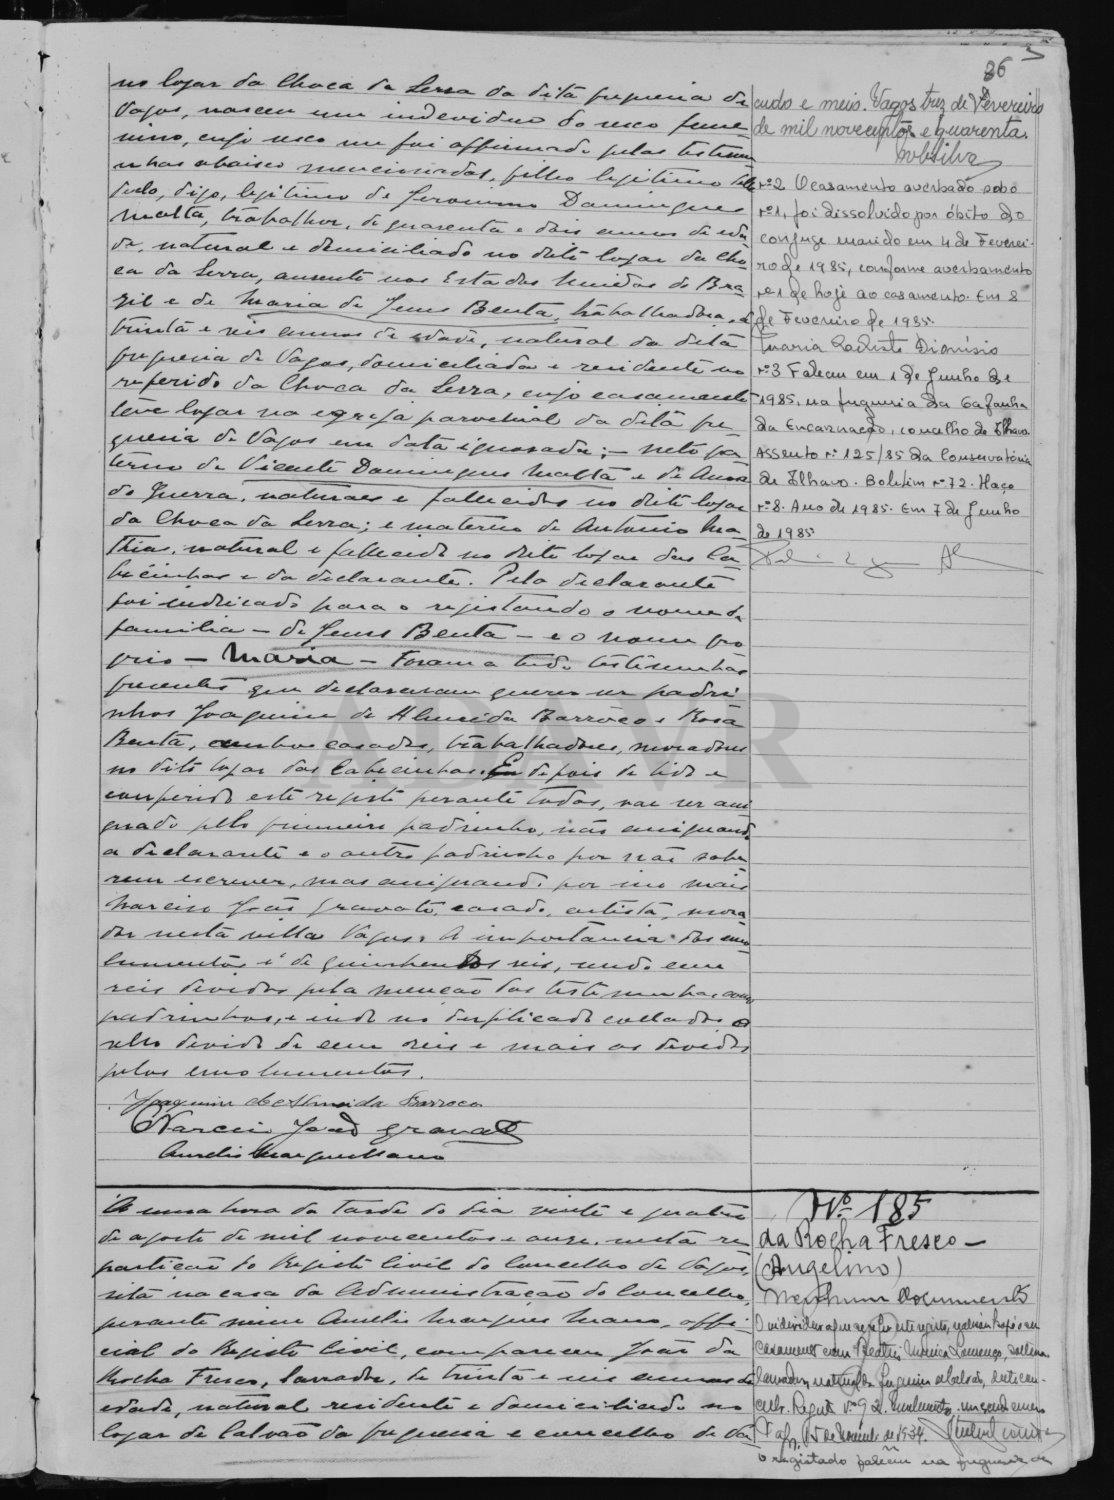 86
no logar da Choca da Serra da dita freguesia de
Vagos, nasceu um individuo do sexo femi-
nino, cujo sexo me foi affirmado pelas testemu
nhas abaixo mencionadas, filho legitimo
digo, legitimo de Jeronimo Domingues
Malta, trabalhor, de quarenta e dois annos de eda
de, natural e domiciliado no dito logar da Cho-
ca da Serra, ausente nos Estados Unidos do Bra-
zil e de Maria de Jesus Benta, trabalhadora, de
trinta e seis annos de edade, natural da dita
freguesia de Vagos, domiciliada e residente no
referido da Choca da Serra, cujo casamento
teve logar na egreja parochial da dita fre
guesia de Vagos em data ignorada; - neto pa
terno de Vicente Domingues Malta e de Anna
de Jesus, naturaes e fallecidos no dito logar
da Choca da Serra; e materno de Antonio Ma
thias, natural e fallecido no dito logar das Ca-
becinhas e da declarante. Pela declarante
foi indicado para o registando o nome de
familia - de Jesus Benta - e o nome pro
prio - Maria - Foram a tudo testemunhas
presentes que declararam querer ser padri
nhos Joaquim de Almeida Barroco e Rosa
Benta, ambos casados, trabalhadores, moradores
no dito logar das Cabecinhas. E depois de lido e
conferido este registo perante todos, vae ser assi
gnado pelo primeiro padrinho, não assignando
a declarante e o outro padrinho por não sabe
rem escrever, mas assignando por isso mais
Narciso João Gravato, casado, artista, mora
dor nesta villa Vagos. A importancia dos emo
lumentos é de quinhentos reis, sendo cem
reis devidos pela menção das testemunhas como
padrinhos, e indo no duplicado collado o
sello devido de cem reis e mais os devidos
pelos emolumentos.
Joaquim de Almeida Barroco
Narciso João Gravato
Aurelio Marques Mano
cudo e meio. Vagos, trez de Fevereiro
de mil novecentos e quarenta.
nº 2 O casamento averbado sob o
nº 1, foi dissolvido por óbito do
conjuge marido em 4 de Feverei-
ro de 1985, conforme averbamento
nº 1 de hoje ao casamento. Em 8
de Fevereiro de 1985.
Maria Dionísio
nº 3 Faleceu em 1 de Junho de
1985, na freguesia da Gafanha
da Encarnação, concelho de Ilhavo
Assento nº 125/85 da Conservatória
de Ilhavo. Boletim nº 72. Maço
nº 8. Ano de 1985. Em 7 de Junho
de 1985
A uma hora da tarde do dia vinte e quatro
de agosto de mil novecentos e onze, nesta re
partição do Registo Civil do Concelho de Vagos
sita na casa da Administração do Concelho,
perante mim Aurelio Marques Mano, offi-
cial do Registo Civil, compareceu João da
Rocha Fresco, lavrador, de trinta e seis annos de
edade, natural residente e domiciliado no
logar de Calvão da freguesia e concelho de Va
Nº 185
da Rocha Fresco -
(Angelino)
Nenhum documento
O individuo a que se refere este registo, realisou hoje o seu
casamento com Beatriz Maria Lourenço, solteira
lavradora, natural da freguesia de Calvão, deste con-
celho. Registo nº 92.
Vagos, 15 de de 1934.
O registado faleceu na freguesia de